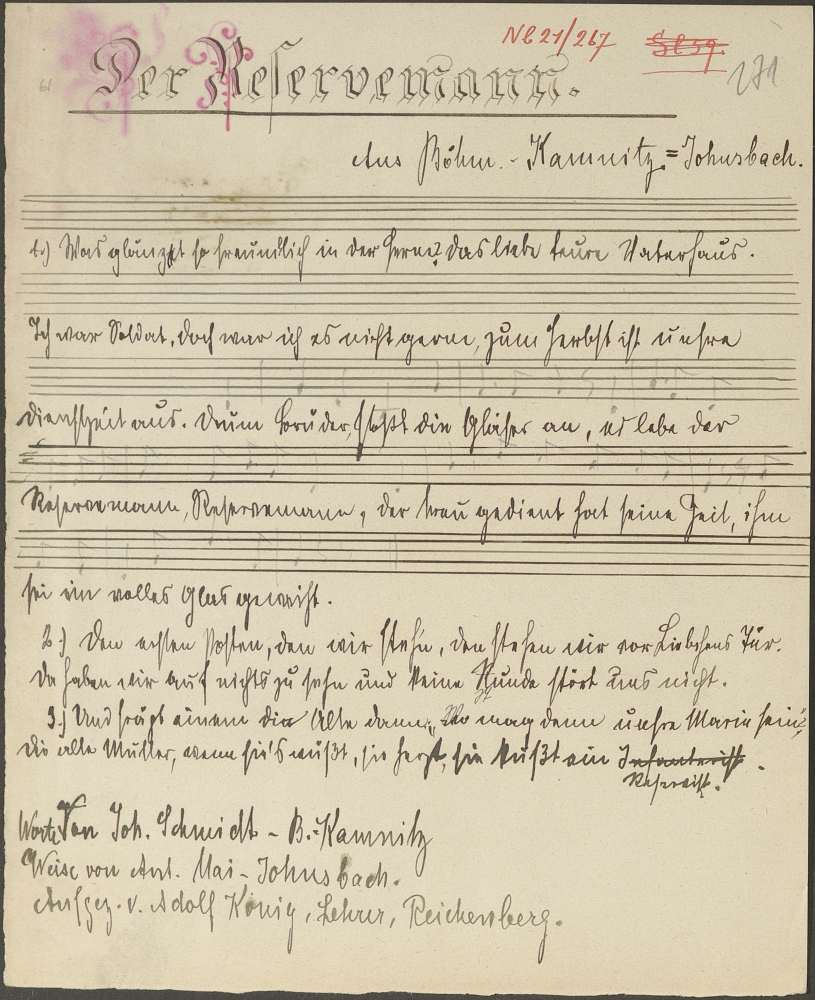 Nl 21/267
Sl 59.
271
61
Der Reservemann.
Aus Böhm.-Kamnitz=Johnsbach.
1.) Was glänzt so freundlich in der Ferne? das liebe teure Vaterhaus.
Ich war Soldat, doch war ich es nicht gerne, zum Herbst ist unsre
Dienstzeit aus. Drum Bruder, stoßt die Gläser an, es lebe der
Reservemann, Reservemann, der treu gedient hat seine Zeit, ihm
sei ein volles Glas geweiht.
2.) Den ersten Posten, den wir stehn, den stehen wir vor Liebchens Tür.
Da haben wir auf nichts zu sehn und keine Runde stört uns nicht.
3.) Und frägt einem die Alte dann: „Wo mag denn unsre Marie sein",
die alte Mutter, wenn sie's wußt, sie herzt, sie kußt ein Infanterist.
Reservist.
Worte von Joh. Schmidt - B.-Kamnitz
Weise von Ant. Mai - Johnsbach.
Aufgez. v. Adolf König, Lehrer, Reichenberg.